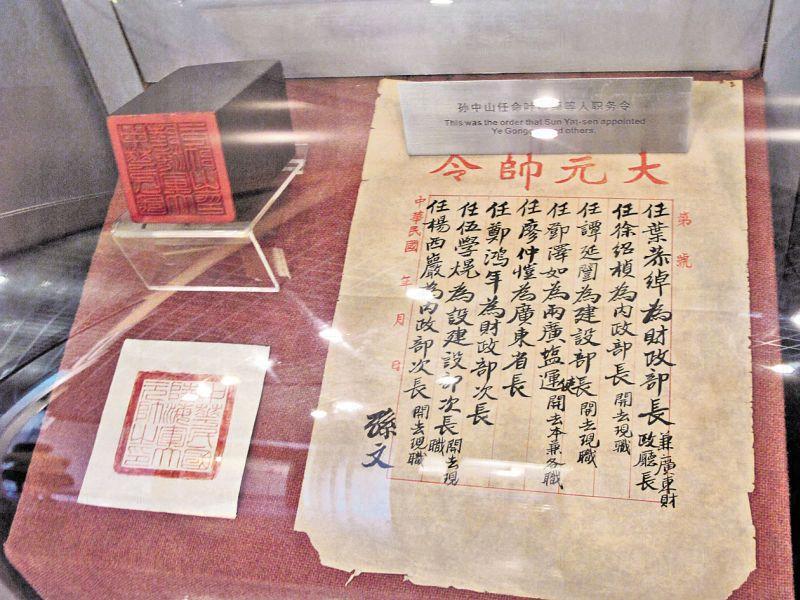 孙中山任命叶 等人职务令
This was the order that Sun Yat-sen appointed
Ye Gong others.
大元帥令
第 號
任葉恭綽為財政部長兼廣東財政廳長
任徐紹楨為內政部長開去現職
任譚延闓為建設部長開去現職
任鄧澤如為兩廣鹽運使開去本兼各職
任廖仲愷為廣東省長
任鄭鴻年為財政部次長
任伍學熀為設建設部次長開去現職
任楊西巖為內政部次長開去現職
孫文
中華民國 年 月 日
中華民國
陸海軍大
元帥之印